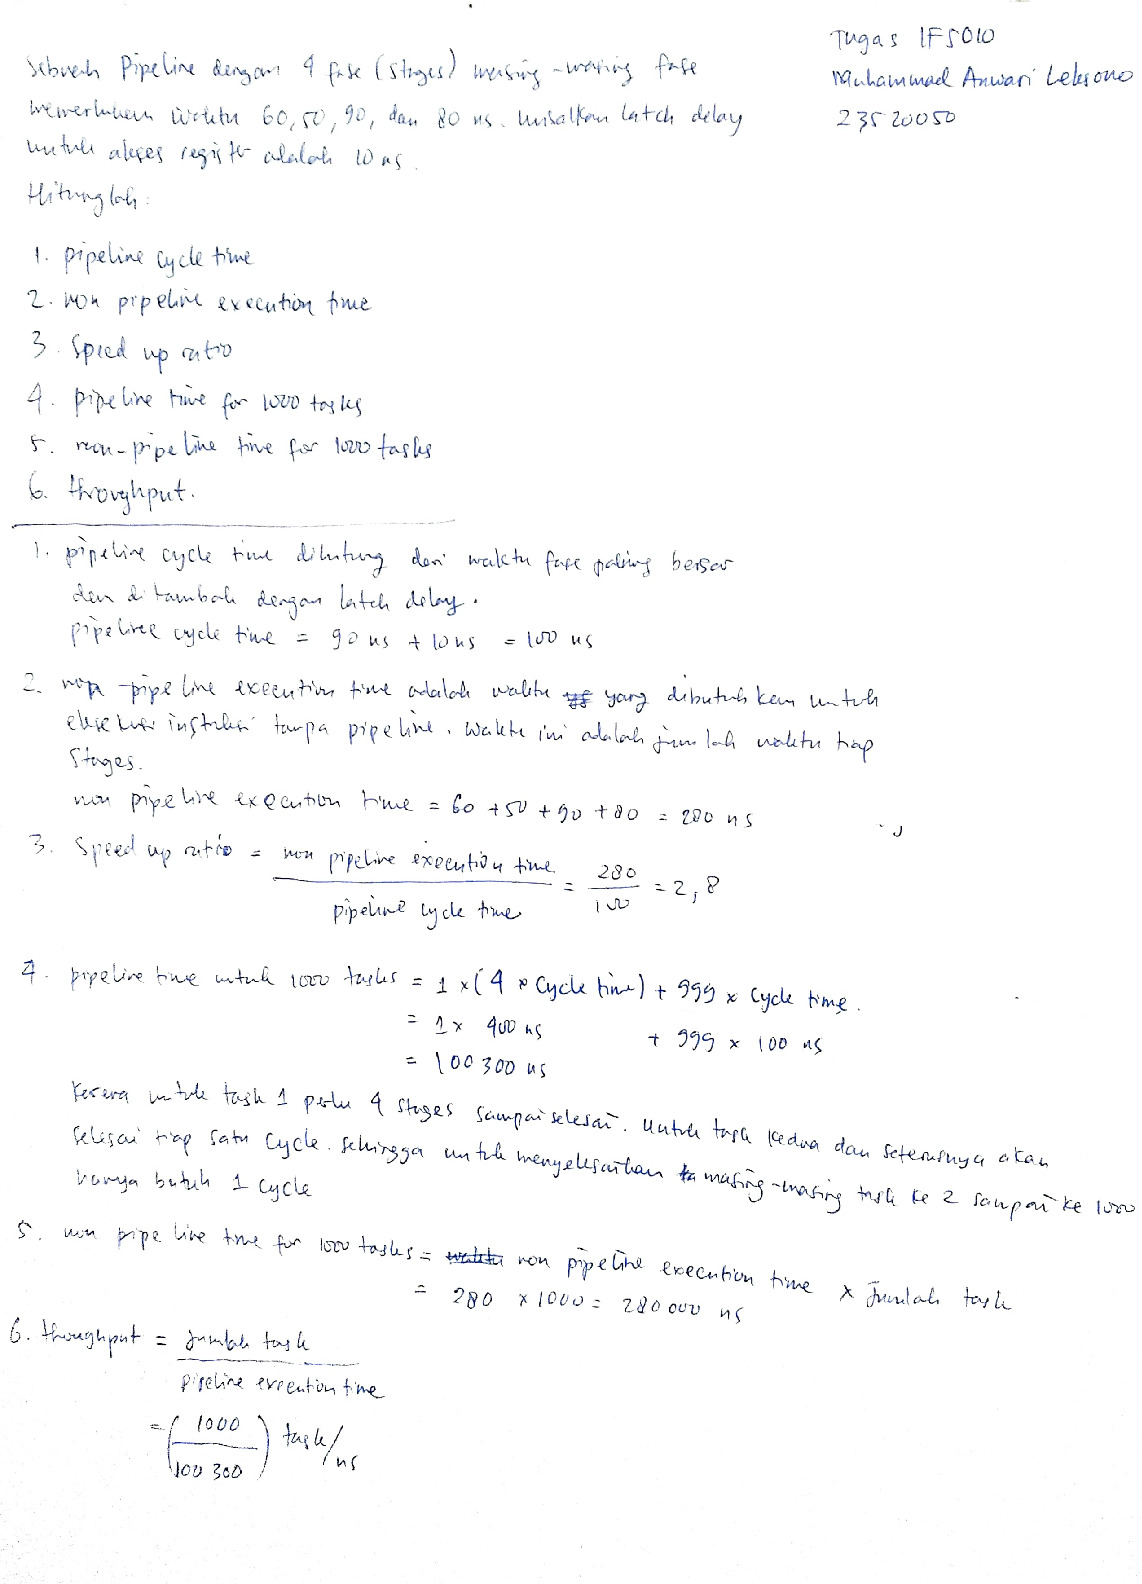 Tugas IF5010
Muhammad Anwari Leksono
23520050
Sebuah Pipeline dengan 4 fase (Stages) masing-masing fase
memerlukan waktu 60, 50, 90, dan 80 ns. misalkan latch delay
untuk akses register adalah 10 ns.
Hitunglah:
1. pipeline cycle time
2. non pipeline execution time
3. Speed up ratio
4. pipeline time for 1000 tasks
5. non-pipeline time for 1000 tasks
6. throughput.
1. pipeline cycle time dihitung dari waktu fase paling besar
dan ditambah dengan latch delay.
pipeline cycle time = 90 ns + 10 ns = 100 ns
2. non-pipeline execution time adalah waktu yang dibutuhkan untuk
eksekusi instruksi tanpa pipeline. waktu ini adalah jumlah waktu tiap
Stages.
non pipeline execution time = 60 + 50 + 90 + 80 = 280 ns
3. Speed up ratio = non pipeline execution time / pipeline cycle time = 280 / 100 = 2,8
4. pipeline time untuk 1000 tasks = 1 x (4 x Cycle time) + 999 x Cycle time.
= 1 x 400 ns + 999 x 100 ns
= 100 300 ns
Karena untuk task 1 perlu 4 Stages sampai selesai. Untuk task kedua dan seterusnya akan
selesai tiap satu cycle. sehingga untuk menyelesaikan masing-masing task ke 2 sampai ke 1000
hanya butuh 1 cycle
5. non pipe line time for 1000 tasks = non pipeline execution time x jumlah task
= 280 x 1000 = 280 000 ns
6. throughput = jumlah task / pipeline execution time
= (1000 / 100 300) task/ns